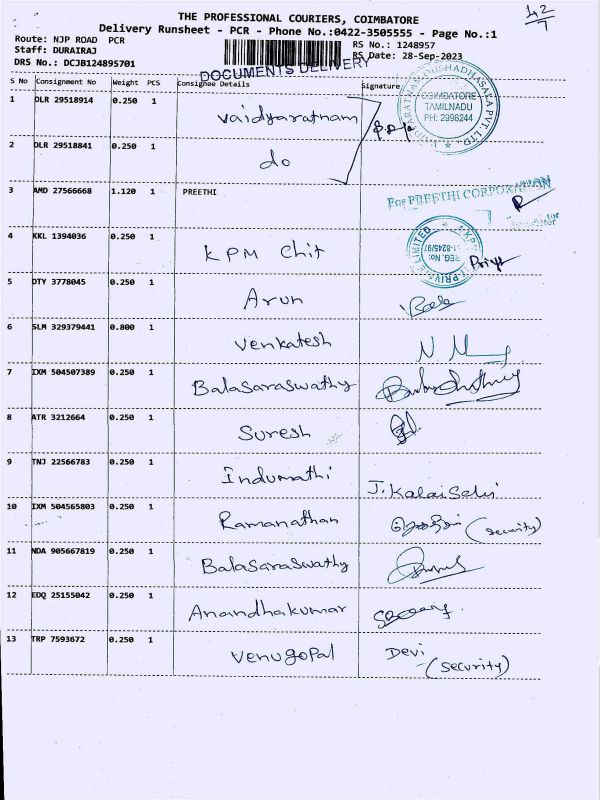 THE PROFESSIONAL COURIERS, COIMBATORE
42/7
Delivery Runsheet - PCR - Phone No.:0422-3505555 - Page No.:1
Route: NJP ROAD PCR
RS No.: 1248957
Staff: DURAIRAJ
RS Date: 28-Sep-2023
DRS No.: DCJB124895701
DOCUMENTS DELIVERY
S No Consignment No Weight PCS Consignee Details Signature
COIMBATORE
TAMILNADU
PH: 2996244
1 DLR 29518914 0.250 1 Vaidyaratnam
2 DLR 29518841 0.250 1 do
3 AMD 27566668 1.120 1 PREETHI
For PREETHI CORPORATION
4 KKL 1394036 0.250 1 KPM Chit Priya
REG. No:
11-8245/97
PRIVATE LIMITED
5 DTY 3778045 0.250 1 Arun
6 SLM 329379441 0.800 1 Venkatesh
7 IXM 504507389 0.250 1 BalaSaraswathy
8 ATR 3212664 0.250 1 Suresh
9 TNJ 22566783 0.250 1 Indumathi J. KalaiSelvi
10 IXM 504565803 0.250 1 Ramanathan (security)
11 NDA 905667819 0.250 1 BalaSaraswathy
12 EDQ 25155042 0.250 1 Anandhakumar
13 TRP 7593672 0.250 1 Venugopal Devi
(security)